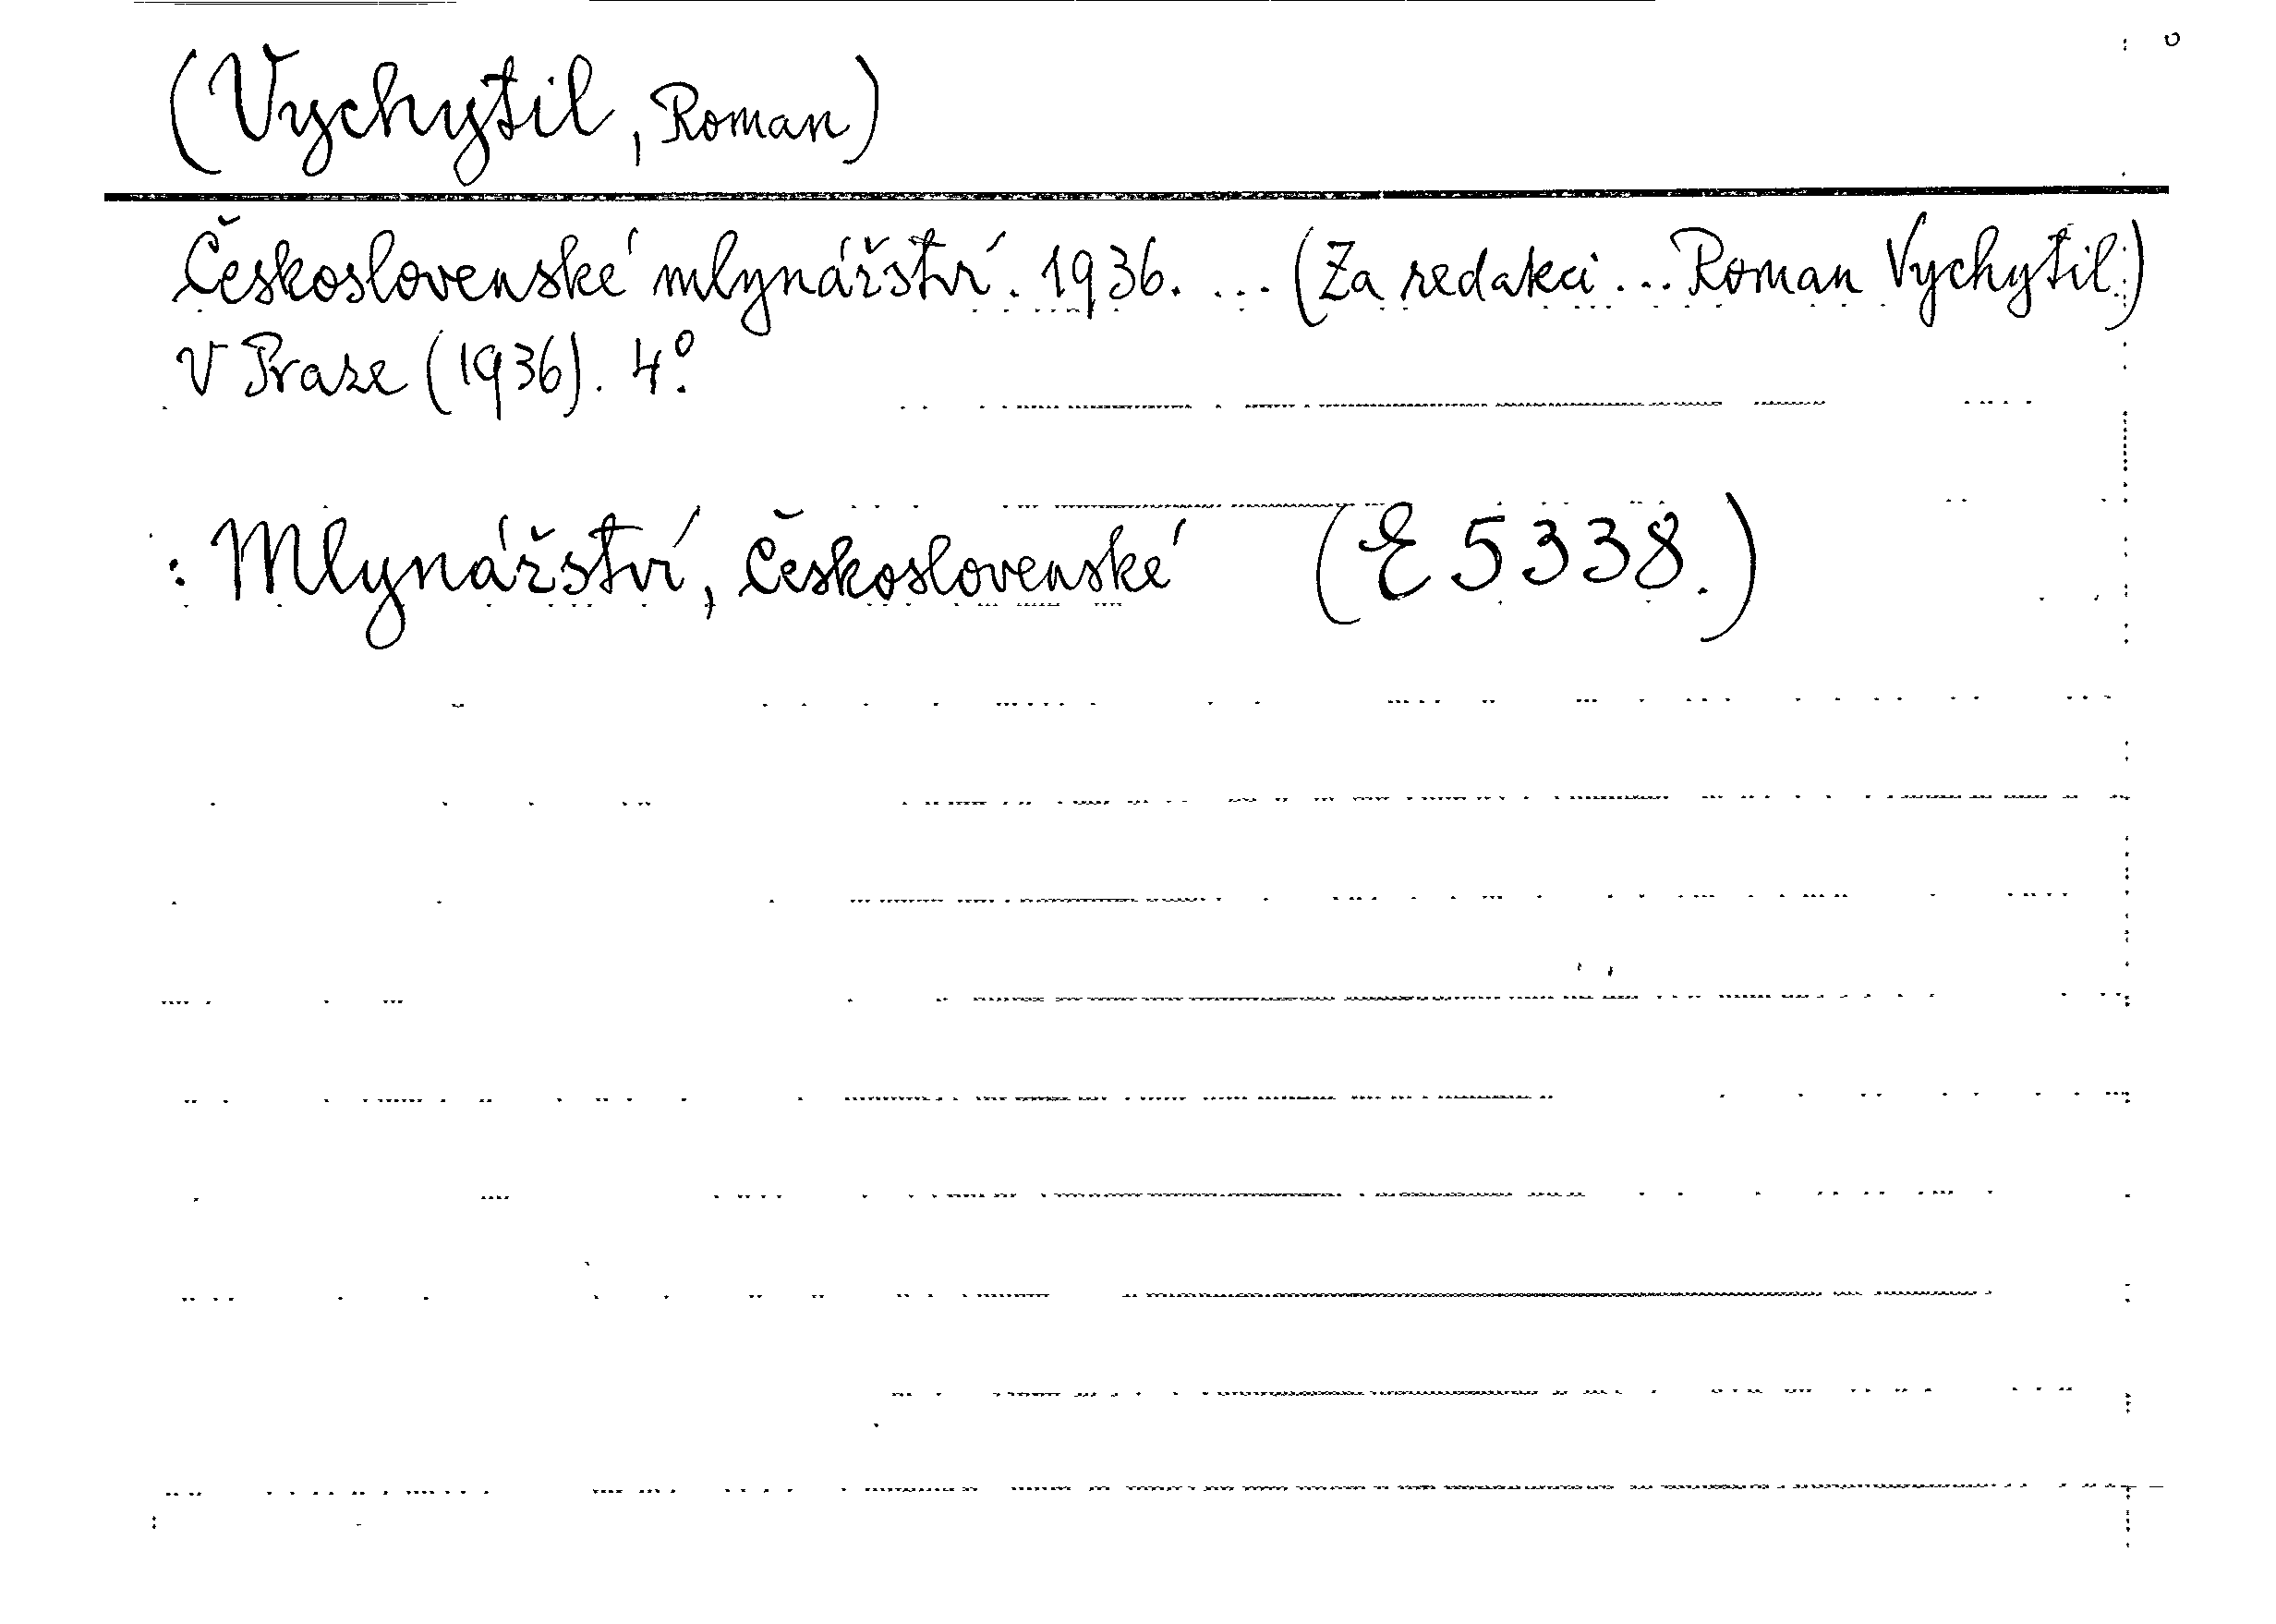 (Vychytil, Roman)
Československé mlynářství. 1936. ... (Za redakci ... Roman Vychytil.)
V Praze (1936). 4°.
: Mlynářství, Československé (E 5338.)